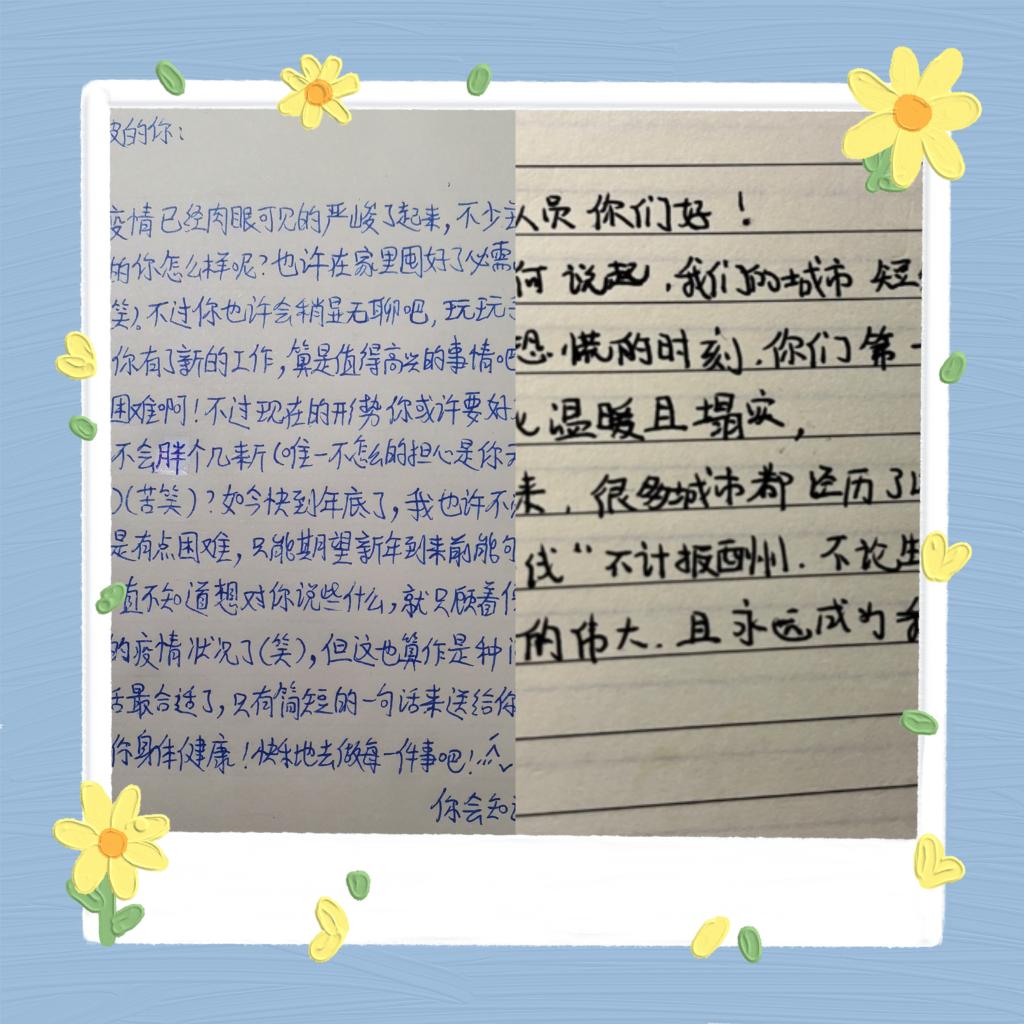 的你：
疫情已经肉眼可见的严峻了起来，不少
的你怎么样呢？也许在家里囤好了必需
笑）。不过你也许会稍显无聊吧，玩玩
你有了新的工作，算是值得高兴的事情吧
困难啊！不过现在的形势你或许要好
不会胖个几斤（唯一不怎么的担心是你
）（苦笑）？如今快到年底了，我也许不
是有点困难，只能期望新年到来前能
直不知道想对你说些什么，就只顾着
的疫情状况了（笑），但这也算作是种
话最合适了，只有简短的一句话来送给你
你身体健康！快乐地去做每一件事吧！
你会知
人员你们好！
何说起，我们的城市短
恐慌的时刻，你们第一
心温暖且塌实，
来，很多城市都经历了
伐“不计报酬州．不论生
的伟大．且永远成为